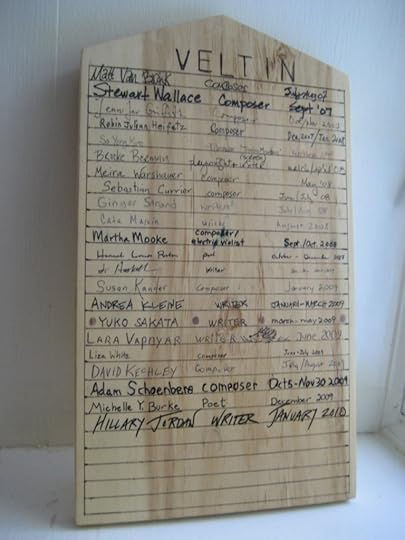 VELTIN
Matt Van Brink composer July/Aug 07
Stewart Wallace Composer Sept '07
Composer Oct/Nov 2007
Robin Julian Heifetz Composer Dec. 2007/Jan. 2008
Brooke Berman playwright + writer
Meira Warshauer composer
Sebastian Currier composer June/July '08
Ginger Strand writer July/Aug 08
Cate Marvin writer August 2008
Martha Mooke composer/ electric violist Sept./Oct. 2008
poet October - December 2008
writer
Susan Kander Composer January 2009
ANDREA KLEINE WRITER JANUARY-MARCH 2009
YUKO SAKATA WRITER march-may 2009
LARA VAPNYAR WRITER June 2009
Liza White composer June-July 2009
DAVID KECHLEY Composer July/August 2009
Adam Schoenberg composer Oct 5-Nov 30 2009
Michelle Y. Burke Poet December 2009
HILLARY JORDAN WRITER JANUARY 2010